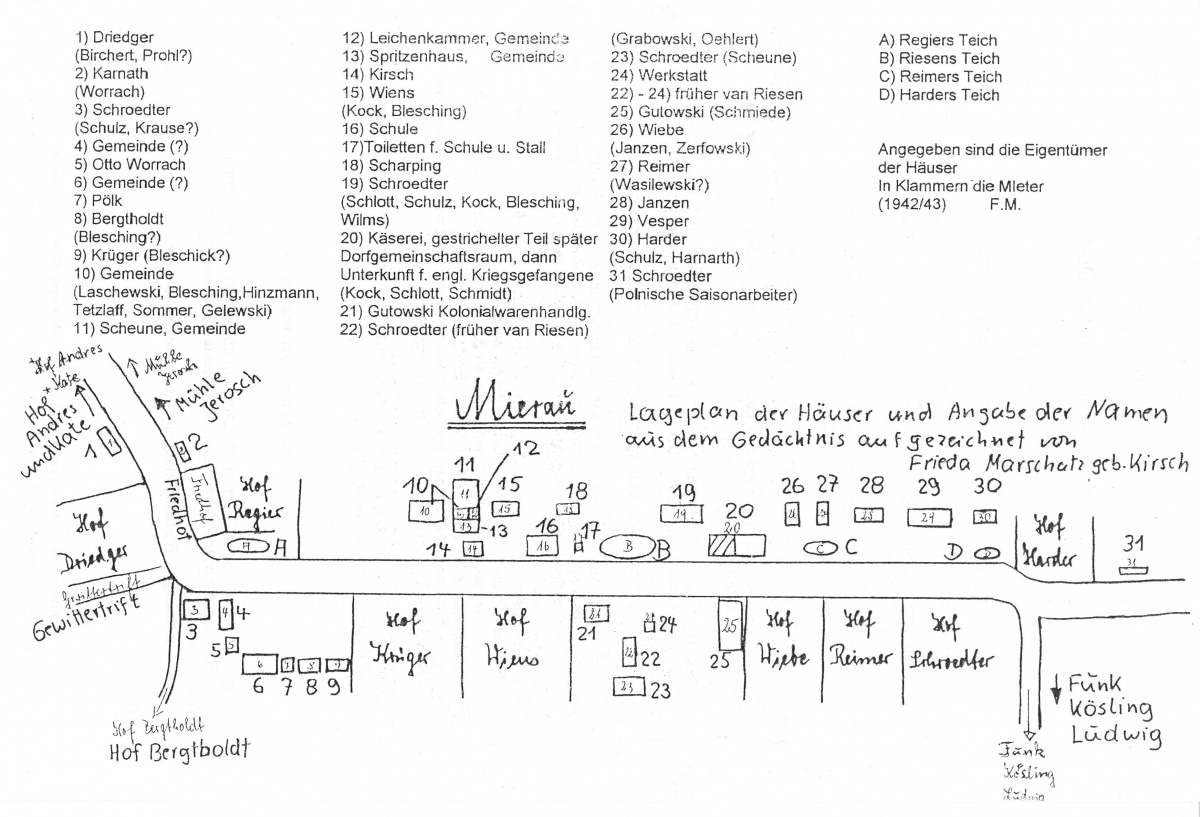 1) Driedger
(Birchert, Prohl?)
2) Karnath
(Worrach)
3) Schroedter
(Schulz, Krause?)
4) Gemeinde (?)
5) Otto Worrach
6) Gemeinde (?)
7) Pölk
8) Bergtholdt
(Blesching?)
9) Krüger (Bleschick?)
10) Gemeinde
(Laschewski, Blesching,Hinzmann,
Tetzlaff, Sommer, Gelewski)
11) Scheune, Gemeinde
12) Leichenkammer, Gemeinde
13) Spritzenhaus, Gemeinde
14) Kirsch
15) Wiens
(Kock, Blesching)
16) Schule
17)Toiletten f. Schule u. Stall
18) Scharping
19) Schroedter
(Schlott, Schulz, Kock, Blesching,
Wilms)
20) Käserei, gestrichelter Teil später
Dorfgemeinschaftsraum, dann
Unterkunft f. engl. Kriegsgefangene
(Kock, Schlott, Schmidt)
21) Gutowski Kolonialwarenhandlg.
22) Schroedter (früher van Riesen)
(Grabowski, Oehlert)
23) Schroedter (Scheune)
24) Werkstatt
22) - 24) früher van Riesen
25) Gutowski (Schmiede)
26) Wiebe
(Janzen, Zerfowski)
27) Reimer
(Wasilewski?)
28) Janzen
29) Vesper
30) Harder
(Schulz, Harnarth)
31 Schroedter
(Polnische Saisonarbeiter)
A) Regiers Teich
B) Riesens Teich
C) Reimers Teich
D) Harders Teich
Angegeben sind die Eigentümer
der Häuser
In Klammern die MIeter
(1942/43) F.M.
Hof Andres
+ Kate
Hof
Andres
und Kate
Mühle
Jerosch
Mühle
Jerosch
Mieraŭ
Lageplan der Häuser und Angabe der Namen
aus dem Gedächtnis aufgezeichnet von
Frieda Marschatz geb. Kirsch
1
2
Friedhof
Friedhof
Hof
Regier
A A
10 10
11 11
12
13 13
14 14
15 15
16 16
17
18 18
B B
19 19
20 20
26
27
28 28
29 29
C C
30 30
D D
Hof
Harder
31 31
Hof
Driedger
Gewittertrift
Gewittertrift
3 3
4 4
5 5
6 6
7 7
8 8
9 9
Hof
Krüger
Hof
Wiens
21 21
22 22
23 23
24
25 25
Hof
Wiebe
Hof
Reimer
Hof
Schroedter
Hof Bergtholdt
Hof Bergtboldt
Fŭnk
Kösling
Lŭdwig
Fŭnk
Kösling
Lŭdwig